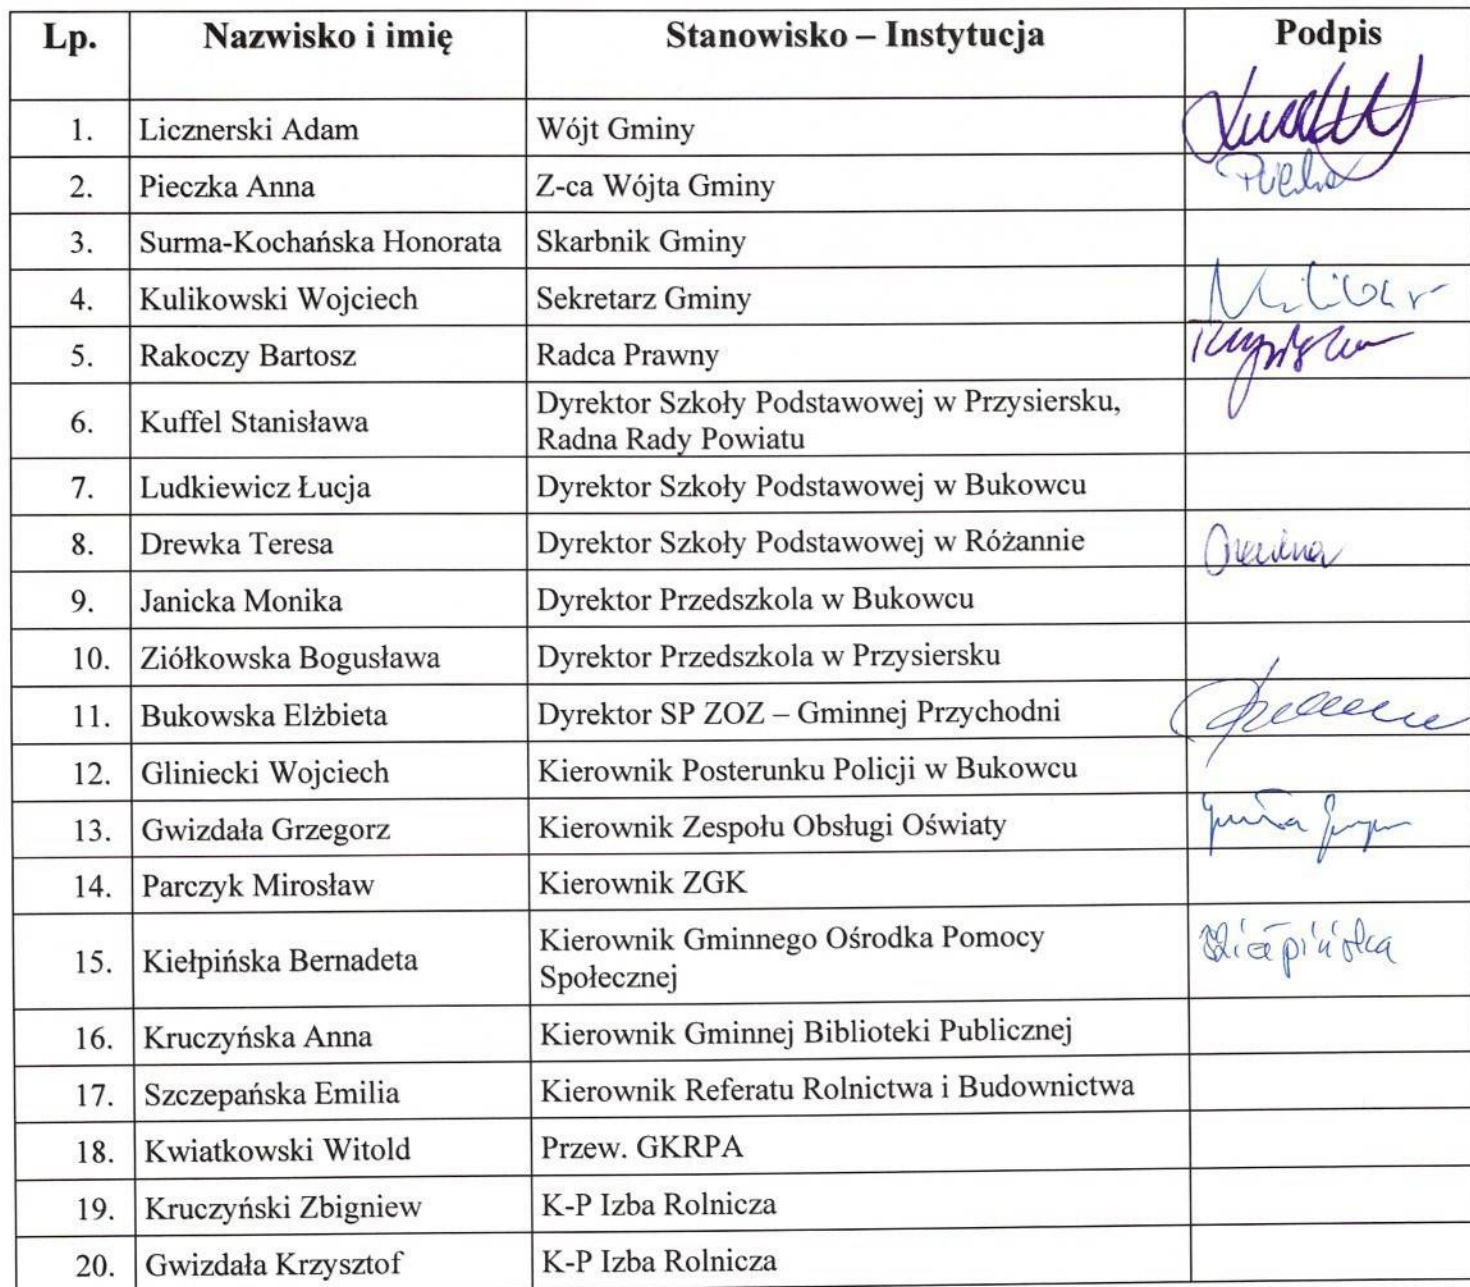 Lp. Nazwisko i imię Stanowisko – Instytucja Podpis
1. Licznerski Adam Wójt Gminy
2. Pieczka Anna Z-ca Wójta Gminy
3. Surma-Kochańska Honorata Skarbnik Gminy
4. Kulikowski Wojciech Sekretarz Gminy
5. Rakoczy Bartosz Radca Prawny
6. Kuffel Stanisława Dyrektor Szkoły Podstawowej w Przysiersku,
Radna Rady Powiatu
7. Ludkiewicz Łucja Dyrektor Szkoły Podstawowej w Bukowcu
8. Drewka Teresa Dyrektor Szkoły Podstawowej w Różannie
9. Janicka Monika Dyrektor Przedszkola w Bukowcu
10. Ziółkowska Bogusława Dyrektor Przedszkola w Przysiersku
11. Bukowska Elżbieta Dyrektor SP ZOZ – Gminnej Przychodni
12. Gliniecki Wojciech Kierownik Posterunku Policji w Bukowcu
13. Gwizdała Grzegorz Kierownik Zespołu Obsługi Oświaty
14. Parczyk Mirosław Kierownik ZGK
15. Kiełpińska Bernadeta Kierownik Gminnego Ośrodka Pomocy
Społecznej
16. Kruczyńska Anna Kierownik Gminnej Biblioteki Publicznej
17. Szczepańska Emilia Kierownik Referatu Rolnictwa i Budownictwa
18. Kwiatkowski Witold Przew. GKRPA
19. Kruczyński Zbigniew K-P Izba Rolnicza
20. Gwizdała Krzysztof K-P Izba Rolnicza